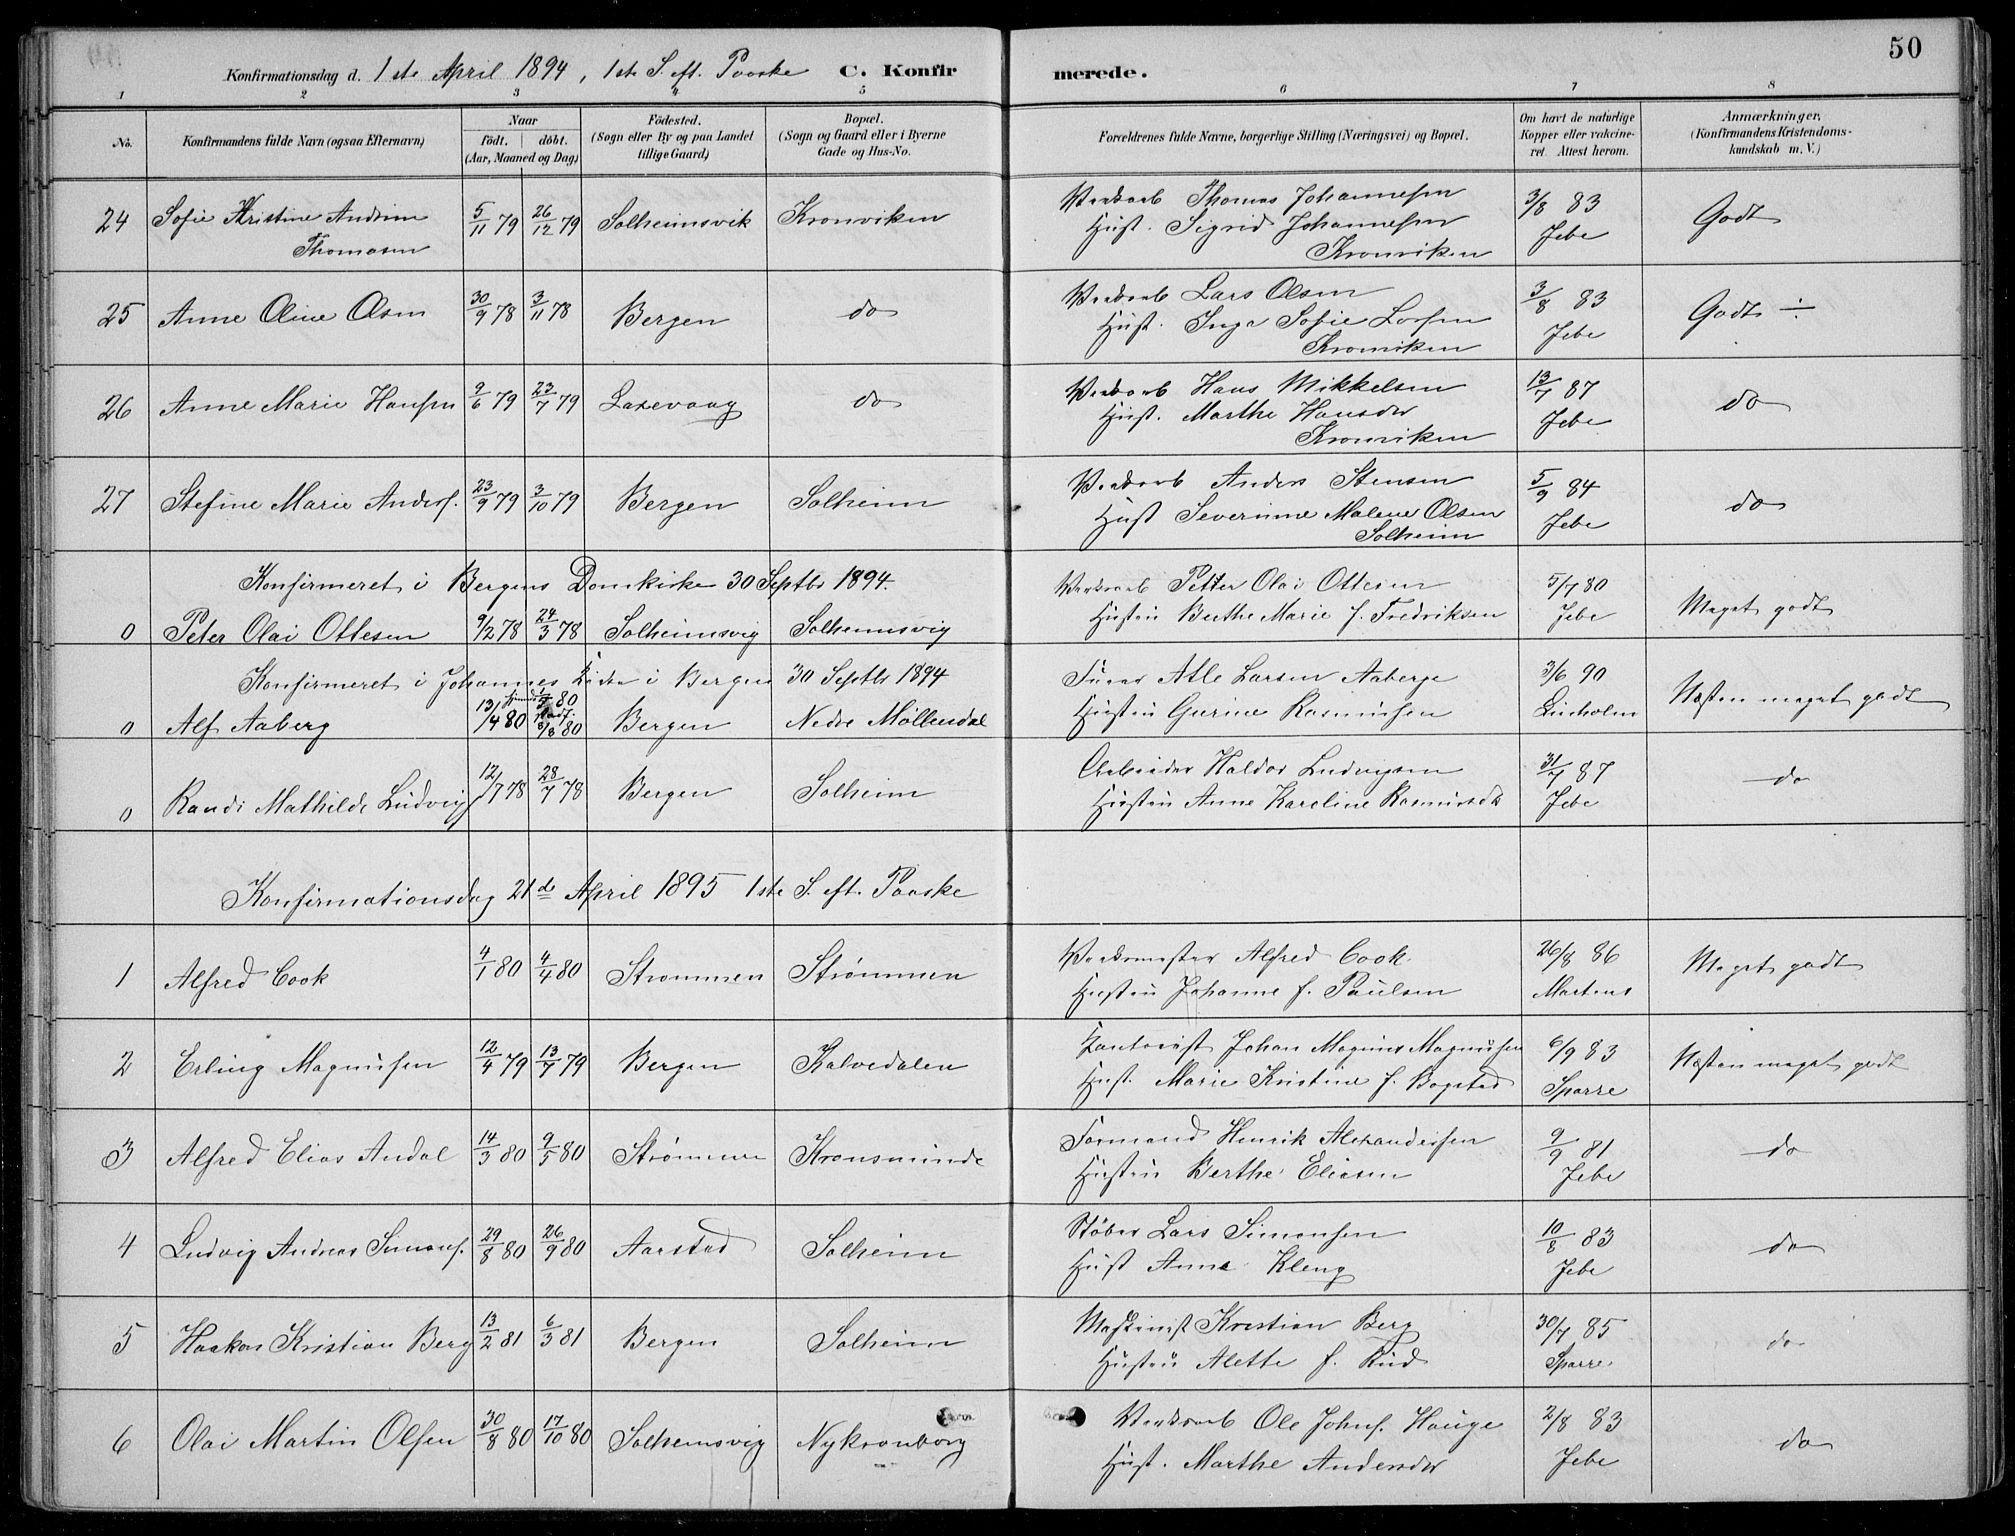 50
Konfirmationsdag d. 1ste April 1894, 1ste S. eft. Paaske C. Konfirmerede.
1 2 3 4 5 6 7 8
No. Konfirmandens fulde Navn (ogsaa Efternavn) Naar født. døbt. (Aar, Maaned og Dag) Fødested. (Sogn eller By og paa Landet tillige Gaard) Bopæl. (Sogn og Gaard eller i Byerne Gade og Hus-No. Forældrenes fulde Navne, borgerlige Stilling (Næringsvei) og Bopæl. Om havt de naturlige Kopper eller vakcineret. Attest herom. Anmærkninger. (Konfirmandens Kristendomskundskab m. V.)
24 Sofie Kristine Andrine Thomasen 5/11 79 26/12 79 Solheimsvik Kronviken Værksarb Thomas Johannesen 3/8 83 Godt
Hust. Sigrid Johannesen Kronviken Jebe
25 Anne Oline Olsen 30/9 78 3/11 78 Bergen do Værksarb Lars Olsen 3/8 83 Godt ÷
Hust. Inga Sofie Larsen Kronviken Jebe
26 Anne Marie Hansen 9/6 79 23/7 79 Laxevaag do Værksarb Hans Mikkelsen 13/7 87 do
Hust. Marthe Hansdr Kronviken Jebe
27 Stefine Marie Anders. 23/9 79 3/10 79 Bergen Solheim Værksarb Anders Stensen 5/9 84 do
Hust Severinne Malene Olsen Solheim Jebe
Konfirmeret i Bergens Domkirke 30 Septbr 1894.
0 Peter Olai Ottesen 9/2 78 24/3 78 Solheimsvig Solheimsvig Værksarb Petter Olai Ottesen 5/7 80 Meget godt
Hustru Berthe Marie f. Fredriksen Jebe
Konfirmeret i Johannes Kirken i Bergen 30 Septbr 1894
0 Alf Aaberg 13/4 80 80 Stadf. 8/8 80 Bergen Nedre Møllendal Atle Larsen Aaberge 3/6 90 Næsten meget godt
Hustru Gurine Rasmussen Linholm
0 Randi Mathilde Ludvigs 12/7 78 28/7 78 Bergen Solheim Arbeider Haldor Ludvigsen 31/7 87 do
Hustru Anne Karoline Rasmusdr Jebe
Konfirmationsdag 21de April 1895 1ste S. eft. Paaske
1 Alfred Cook 4/1 80 4/4 80 Strømmen Strømmen Værksmester Alfred Cook 26/8 86 Meget godt
Hustru Johanne f. Paulsen Martens
2 Erling Magnusen 12/4 79 13/7 79 Bergen Kalvedalen Kontorist Johan Magnus Magnusen 6/9 83 Næsten meget godt
Hust. Marie Kristine f. Bogstad Sparre
3 Alfred Elias Andal 14/3 80 9/5 80 Strømmen Kronsminde Formand Henrik Alexandersen 9/9 81 do
Hustru Berthe Eliasen Jebe
4 Ludvig Andreas Simons. 29/8 80 26/9 80 Aarstad Solheim Støber Lars Simonsen 10/8 83 do
Hust Anna Kleng Jebe
5 Haakon Kristian Berg 13/2 81 6/3 81 Bergen Solheim Maskinist Kristian Berg 30/7 85 do
Hustru Alette f. Rud Sparre
6 Olai Martin Olsen 30/8 80 17/10 80 Solheimsvig Nykronborg Værksarb Ole Johns. Hauge 2/8 83 do
Hust. Marthe Andersdr Jebe